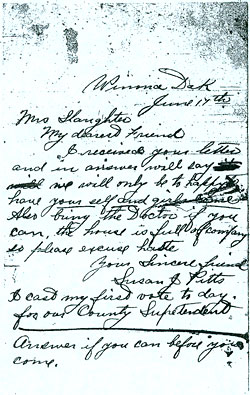 Winona Dak
June 17th
Mrs Slaughter
My dearest Friend
I received your letter
and in answer will say
we will only be to happy to
have your self and
Also bring the Doctor if you
can, the house is full of company
so please excuse haste
Your Sincere friend
Susan J Pitts
I cast my first vote to day
for our County Supetendent
Answer if you can before you
come.